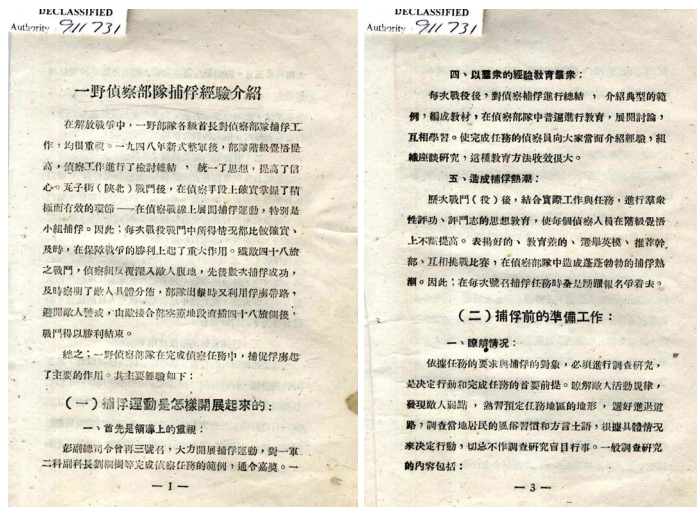 DECLASSIFIED
Authority 911731
一野偵察部隊捕俘經驗介紹
在解放戰爭中，一野部隊各級首長對偵察部隊捕俘工
作，均很重視。一九四八年新式整軍後，部隊階級覺悟提
高，偵察工作進行了檢討總結，統一了思想，提高了信
心。瓦子街（陝北）戰鬥後，在偵察手段上確實掌握了積
極而有效的環節——在偵察戰線上展開捕俘運動，特別是
小組捕俘。因此；每次戰役戰鬥中所得情況都比較確實、
及時，在保障戰爭的勝利上起了重大作用。殲敵四十八旅
之戰鬥，偵察組反覆深入敵人腹地，先後數次捕俘成功，
及時察明了敵人具體分佈，部隊出擊時又利用俘虜帶路，
避開敵人警戒，由敵接合部空隙地段直插四十八旅側後，
戰鬥得以勝利結束。
總之；一野偵察部隊在完成偵察任務中，捕捉俘虜起
了主要的作用。其主要經驗如下：
（一）捕俘運動是怎樣開展起來的：
一、首先是領導上的重視：
彭副總司令曾再三號召，大力開展捕俘運動，對一軍
二科副科長劉桐樹等完成偵察任務的範例，通令嘉獎。一
—1—
DECLASSIFIED
Authority 911731
四、以羣衆的經驗教育羣衆：
每次戰役後，對偵察捕俘進行總結，介紹典型的範
例，編成教材，在偵察部隊中普遍進行教育，展開討論，
互相學習。使完成任務的偵察員向大家當面介紹經驗，組
織座談研究，這種教育方法收效很大。
五、造成捕俘熱潮：
歷次戰鬥（役）後，結合實際工作與任務，進行羣衆
性評功、評鬥志的思想教育，使每個偵察人員在階級覺悟
上不斷提高。表揚好的、教育差的、選舉英模、推荐幹
部、互相挑戰比賽，在偵察部隊中造成蓬蓬勃勃的捕俘熱
潮。因此；在每次號召捕俘任務時全是踴躍報名爭着去。
（二）捕俘前的準備工作：
一、瞭解情况：
依據任務的要求與捕俘的對象，必須進行調查研究，
是決定行動和完成任務的首要前提。瞭解敵人活動規律，
發現敵人弱點，熟習預定任務地區的地形，選好進退道
路，調查當地居民的風俗習慣和方言土語，根據具體情况
來決定行動，切忌不作調查研究盲目行事。一般調查研究
的內容包括：
—3—